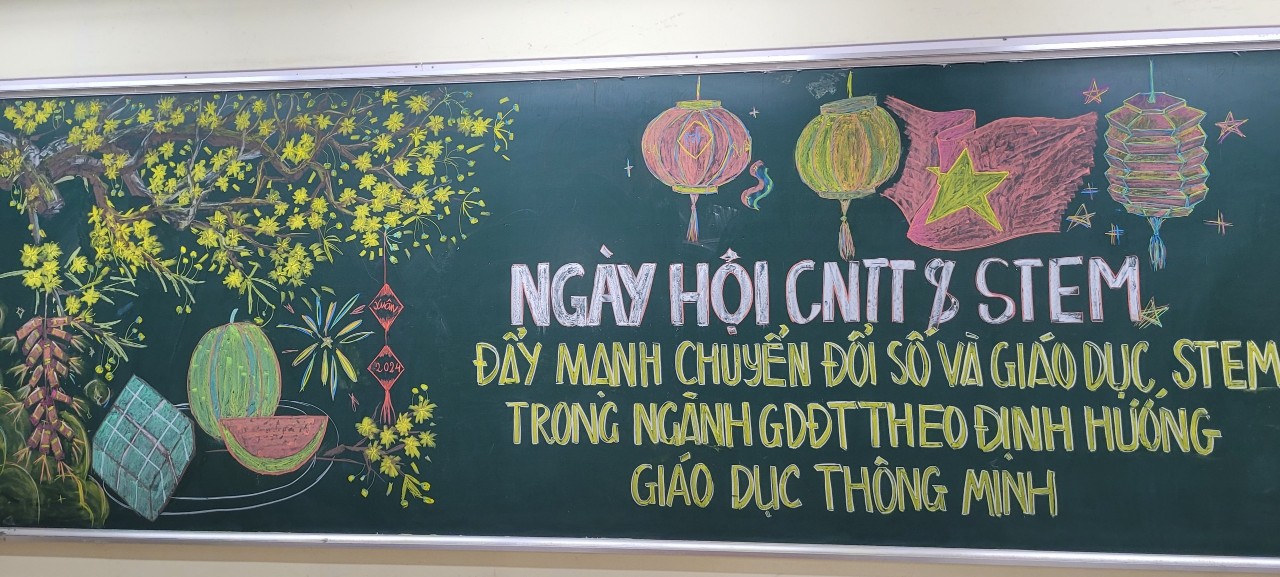 XUÂN
2024
NGÀY HỘI CNTT & STEM
ĐẨY MẠNH CHUYỂN ĐỔI SỐ VÀ GIÁO DỤC STEM
TRONG NGÀNH GDĐT THEO ĐỊNH HƯỚNG
GIÁO DỤC THÔNG MINH